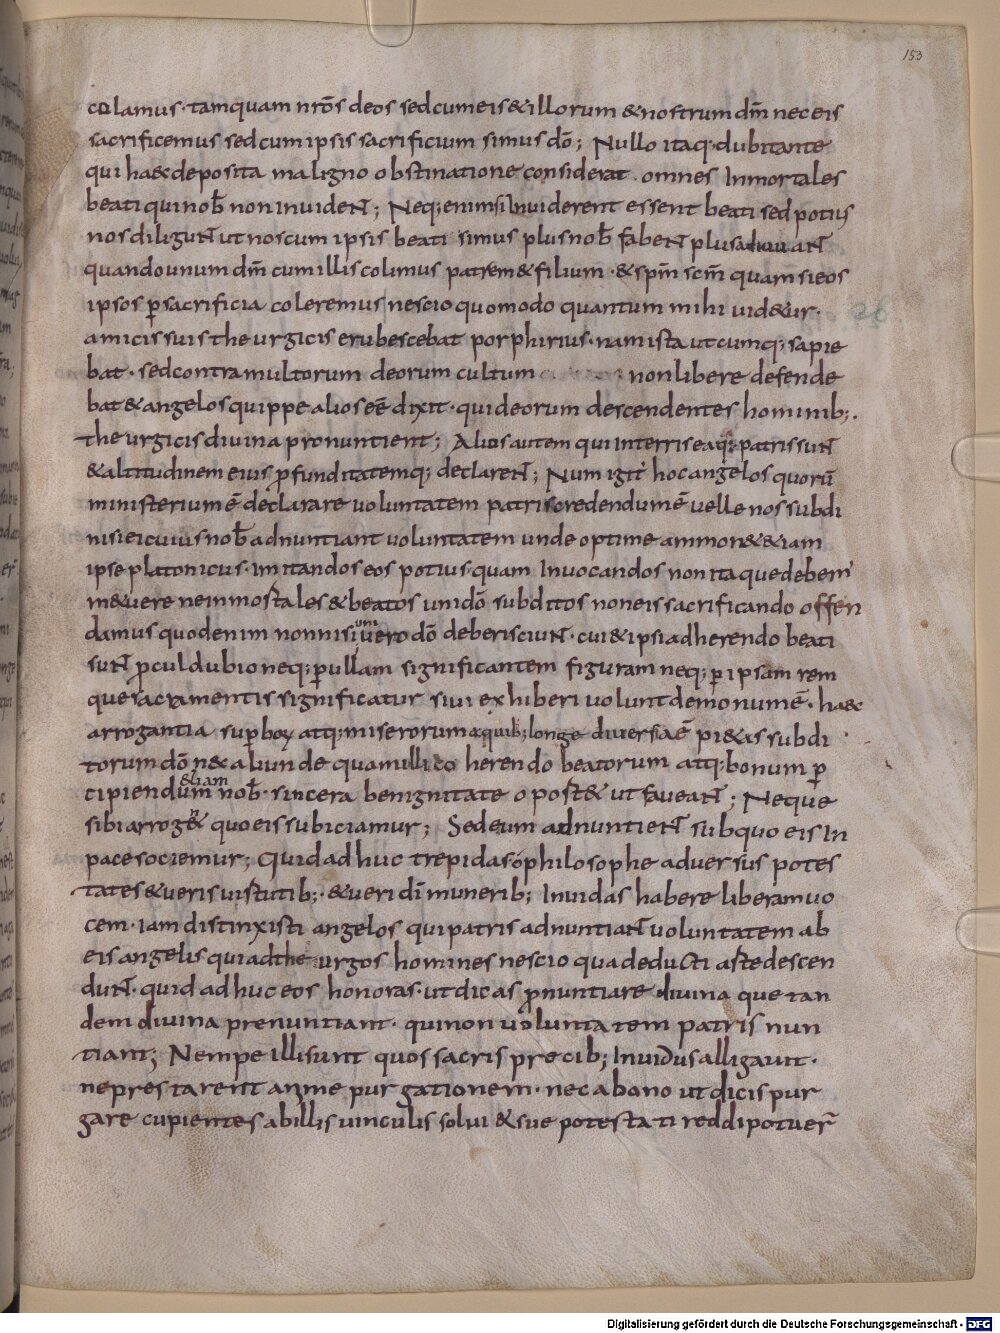 153
colamus· tamquam nr̄os deos sed cum eis & illorum & nostrum dm̄ nec eis
sacrificemus sed cum ipsis sacrificium simus dō; Nullo itaq· dubitante
qui haec deposita maligno obstinatione considerat· omnes Inmortales
beati qui nob̄ non inuident; Neq; enim si Inuiderent essent beati sed potius
nos diligunt ut nos cum ipsis beati simus plus nob̄ fabent plus
quando unum dm̄ cum illis colimus patrem & filium· & spm̄ scm̄ quam si eos
ipsos p̄ sacrificia coleremus nescio quomodo quantum mihi uid&ur·
amicis suis theurgicis erubescebat porphirius· nam ista utcumq; sapie
bat· sed contra multorum deorum cultum non libere defende
bat & angelos quippe alios eē dixit· qui deorum descendentes hominib;·
theurgicis diuina pronuntient; Alios autem qui in terris eaq; patris sunt
& altitudinem eius p̄funditatemq; declarent; Num igit̄ hoc angelos quorū
ministerium ē declarare uoluntatem patris credendum ē uelle nos subdi
nisi ei cuius nob̄ adnuntiant uoluntatem unde optime ammon& &iam
ipse platonicus· imitandos eos potius quam Inuocandos non itaque debem'
m&uere ne inmortales & beatos uni dō subditos non eis sacrificando offen
damus quod enim non nisi uni uero dō deberi sciunt· cui & ipsi adherendo beati
sunt p̄cul dubio neq; p̄ ullam significantem figuram neq; p̄ ipsam rem
que sacramentis significatur siui exhiberi uolunt demonum ē· haec
arrogantia sup̄borꝝ atq; miserorum a quib; longe diuersa ē pi&as subdi
torum dō n& aliunde quam illi co herendo beatorum atq; bonum p̄
cipiendum &iam nob̄· sincera benignitate oport& ut faueant; Neque
sibi arrogent quo eis subiciamur; Sed eum adnuntient sub quo eis In
pace sociemur; Quid adhuc trepidas ó philosophe aduersus potes
tates & ueris uirtutib;· & ueri dī munerib; Inuidas habere liberam uo
cem· iam distinxisti angelos qui patris adnuntiant uoluntatem ab
eis angelis qui ad theurgos homines nescio qua deducti arte descen
dunt· quid adhuc eos honoras· ut dicas p̄nuntiare diuina que tan
dem diuina prenuntiant· qui non uoluntatem patris nun
tiant; Nempe illi sunt quos sacris precib; Inuidus alligauit·
ne prestarent anime purgationem· nec a bono ut dicis pur
gare cupientes ab illis uinculis solui & sue potestati reddi potuer̄
Digitalisierung gefördert durch die Deutsche Forschungsgemeinschaft - DFG